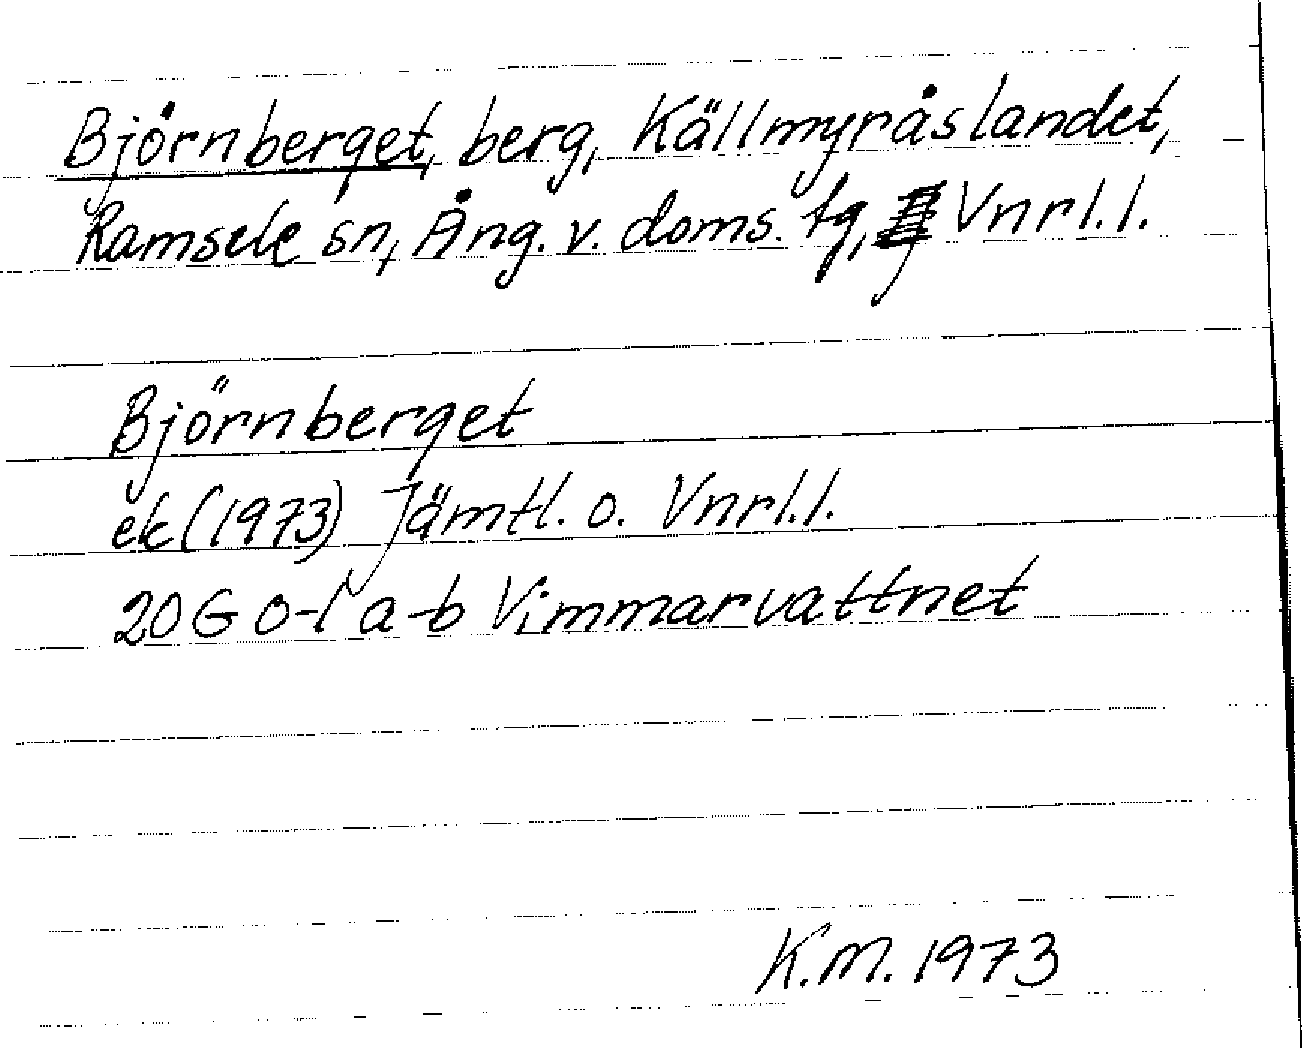 Björnberget, berg, Källmyråslandet,
Ramsele sn, Ång. v. doms. tg, Vnrl.l.
Björnberget
ek (1973) Jämtl. o. Vnrl.l.
20 G 0-1 a-b Vimmarvattnet
K.M. 1973